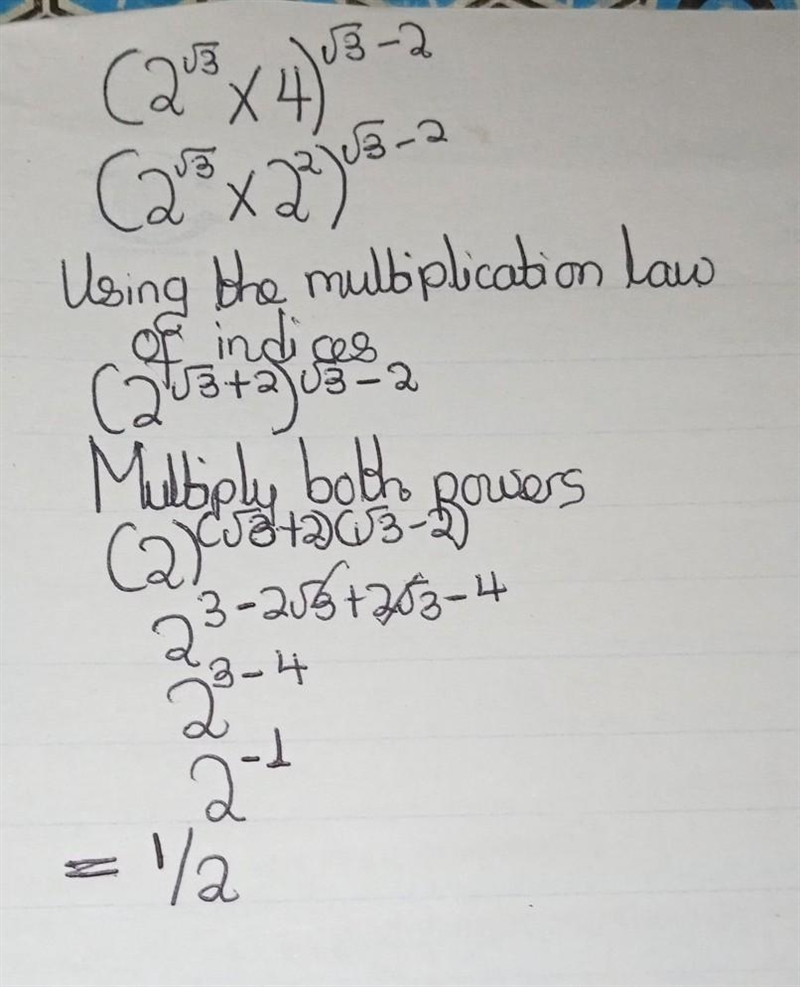 (2^√3 × 4)^√3 - 2
(2^√3 × 2^2)^√3 - 2
Using the multiplication law
of indices
(2^√3 + 2)^√3 - 2
Multiply both powers
(2)^(√3 + 2)(√3 - 2)
2^3 - 2√3 + 2√3 - 4
2^3 - 4
2^-1
= 1/2